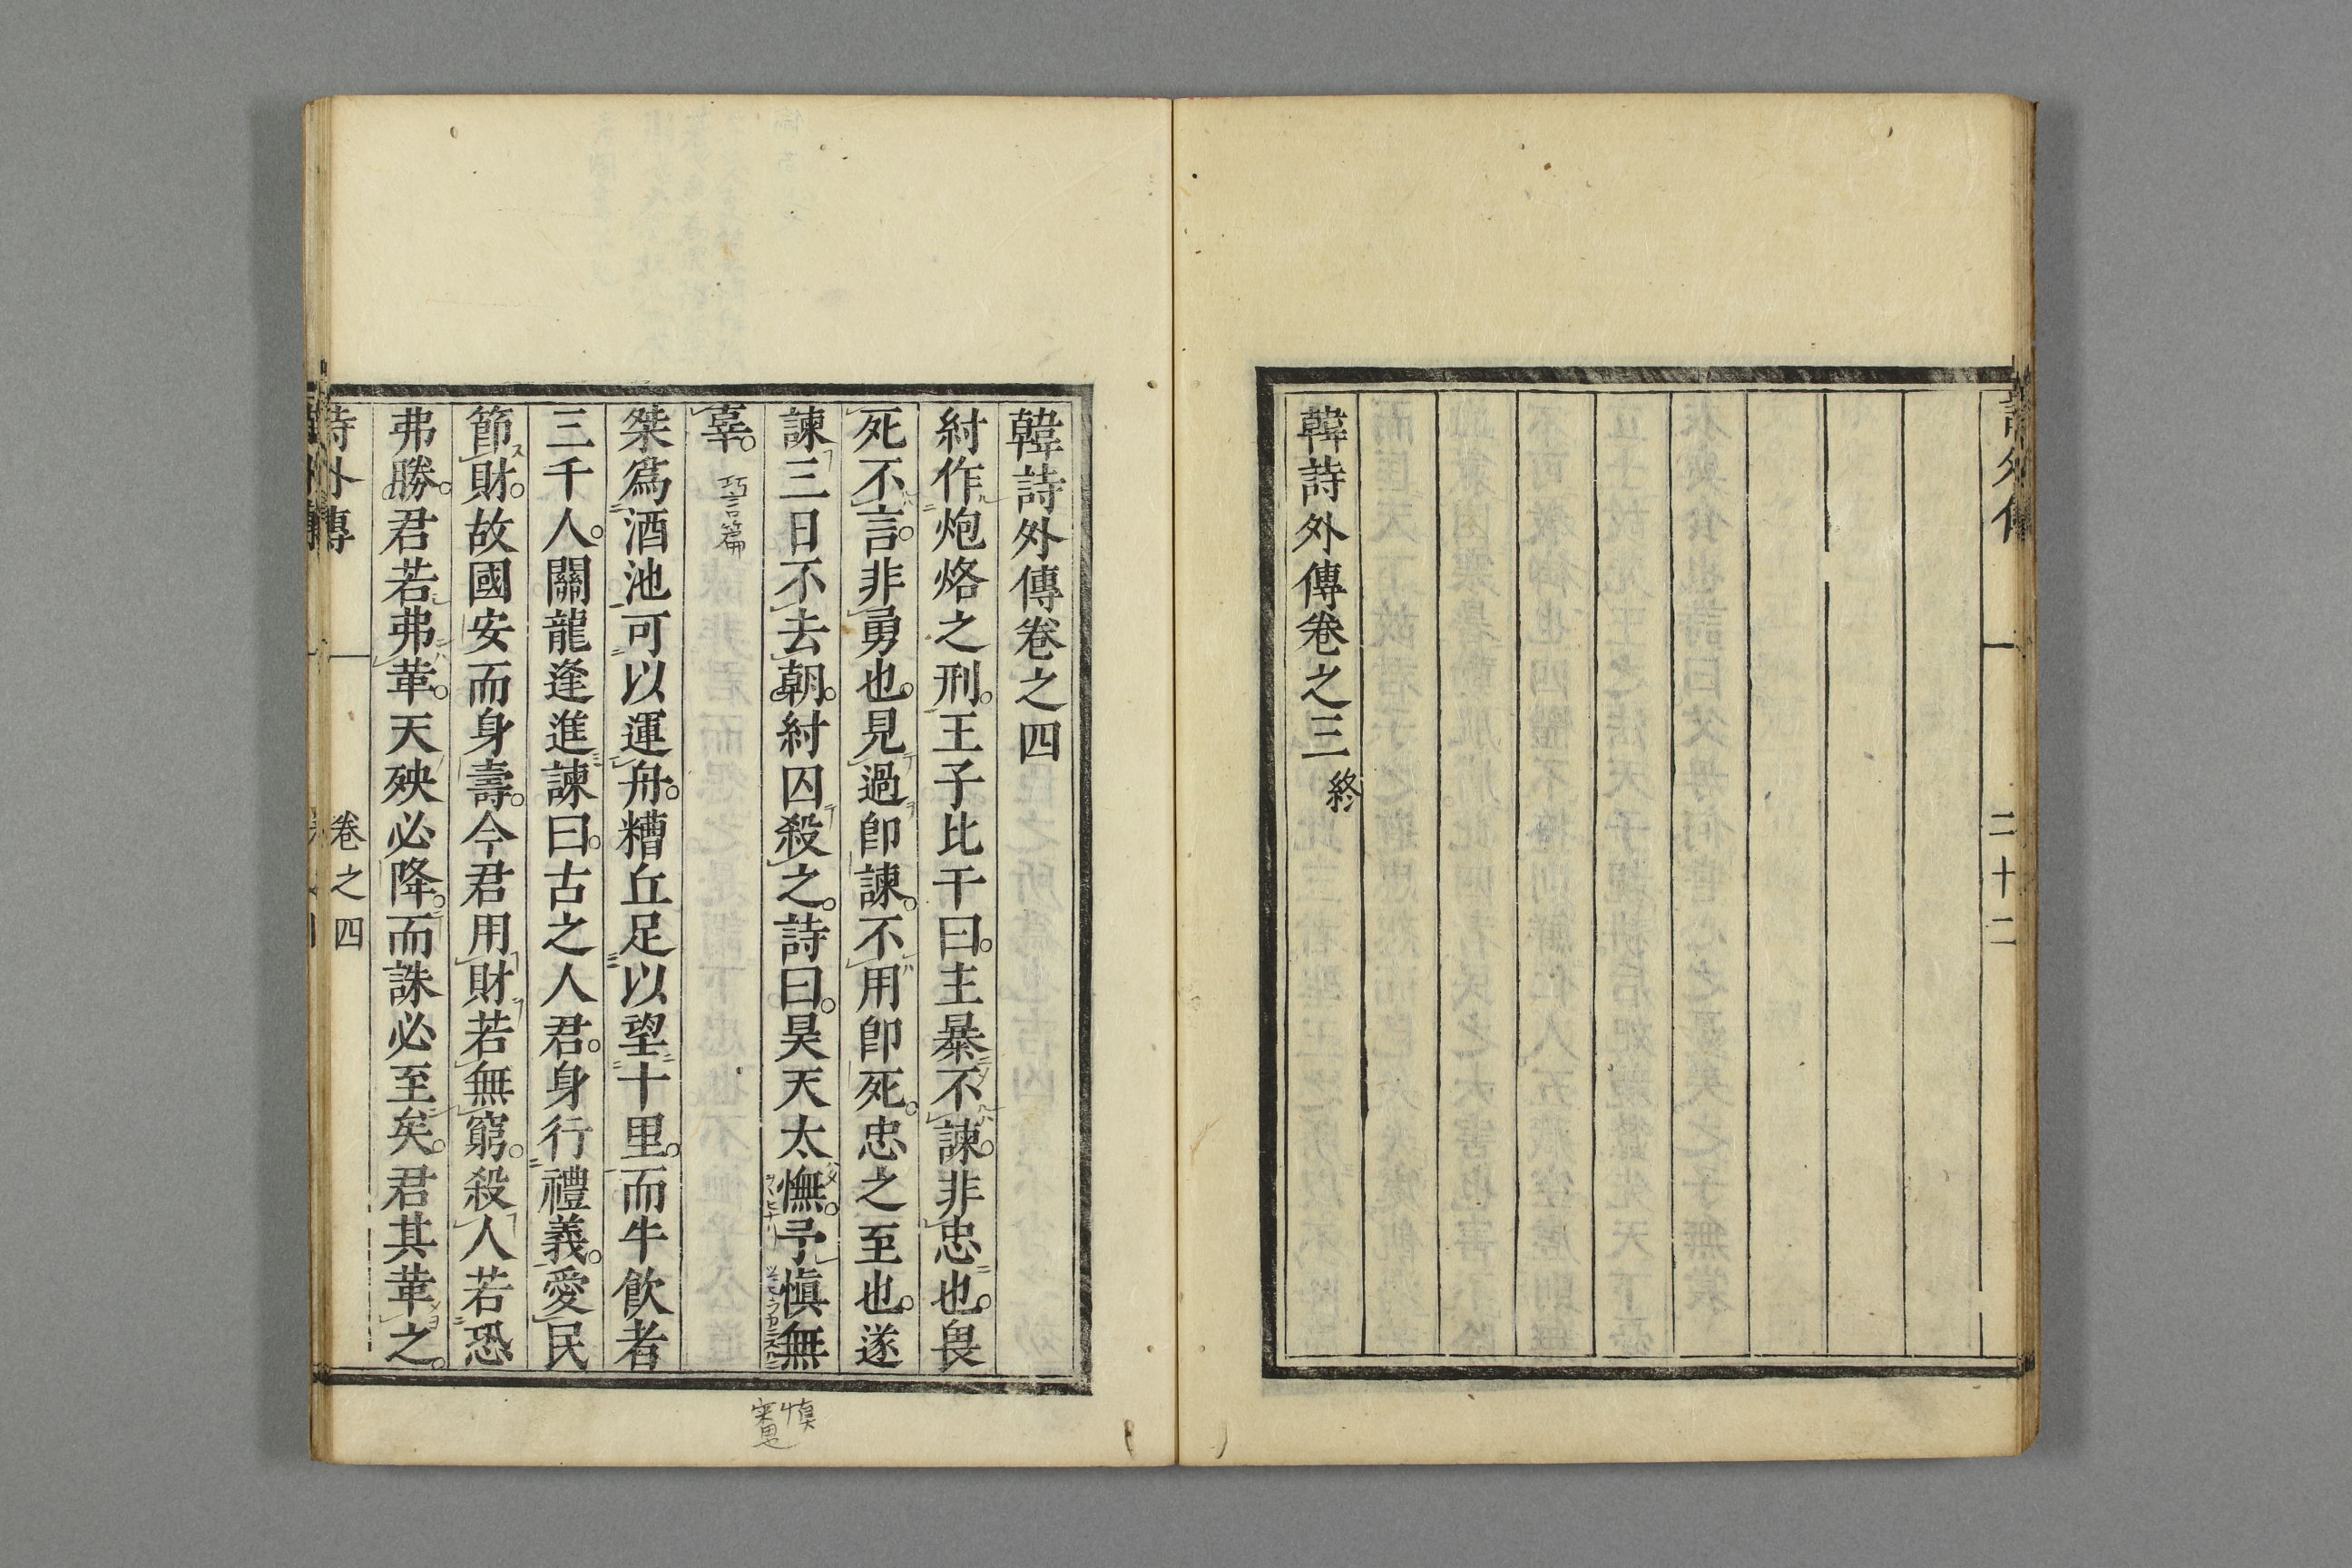 二十二
韓詩外傳卷之三終
韓詩外傳卷之四
紂作炮烙之刑。王子比干曰。主暴不諫。非忠也。畏
死不言。非勇也。見過卽諫。不用卽死。忠之至也。遂
諫三日不去朝。紂囚殺之。詩曰。昊天太憮。予愼無
辜。巧言篇
桀爲酒池可以運舟。糟丘足以望十里。而牛飮者
三千人。關龍逢進諫曰。古之人君。身行禮義。愛民
節財。故國安而身壽。今君用財若無窮。殺人若恐
弗勝。君若弗革。天殃必降。而誅必至矣。君其革之。
詩外傳 卷之四
愼